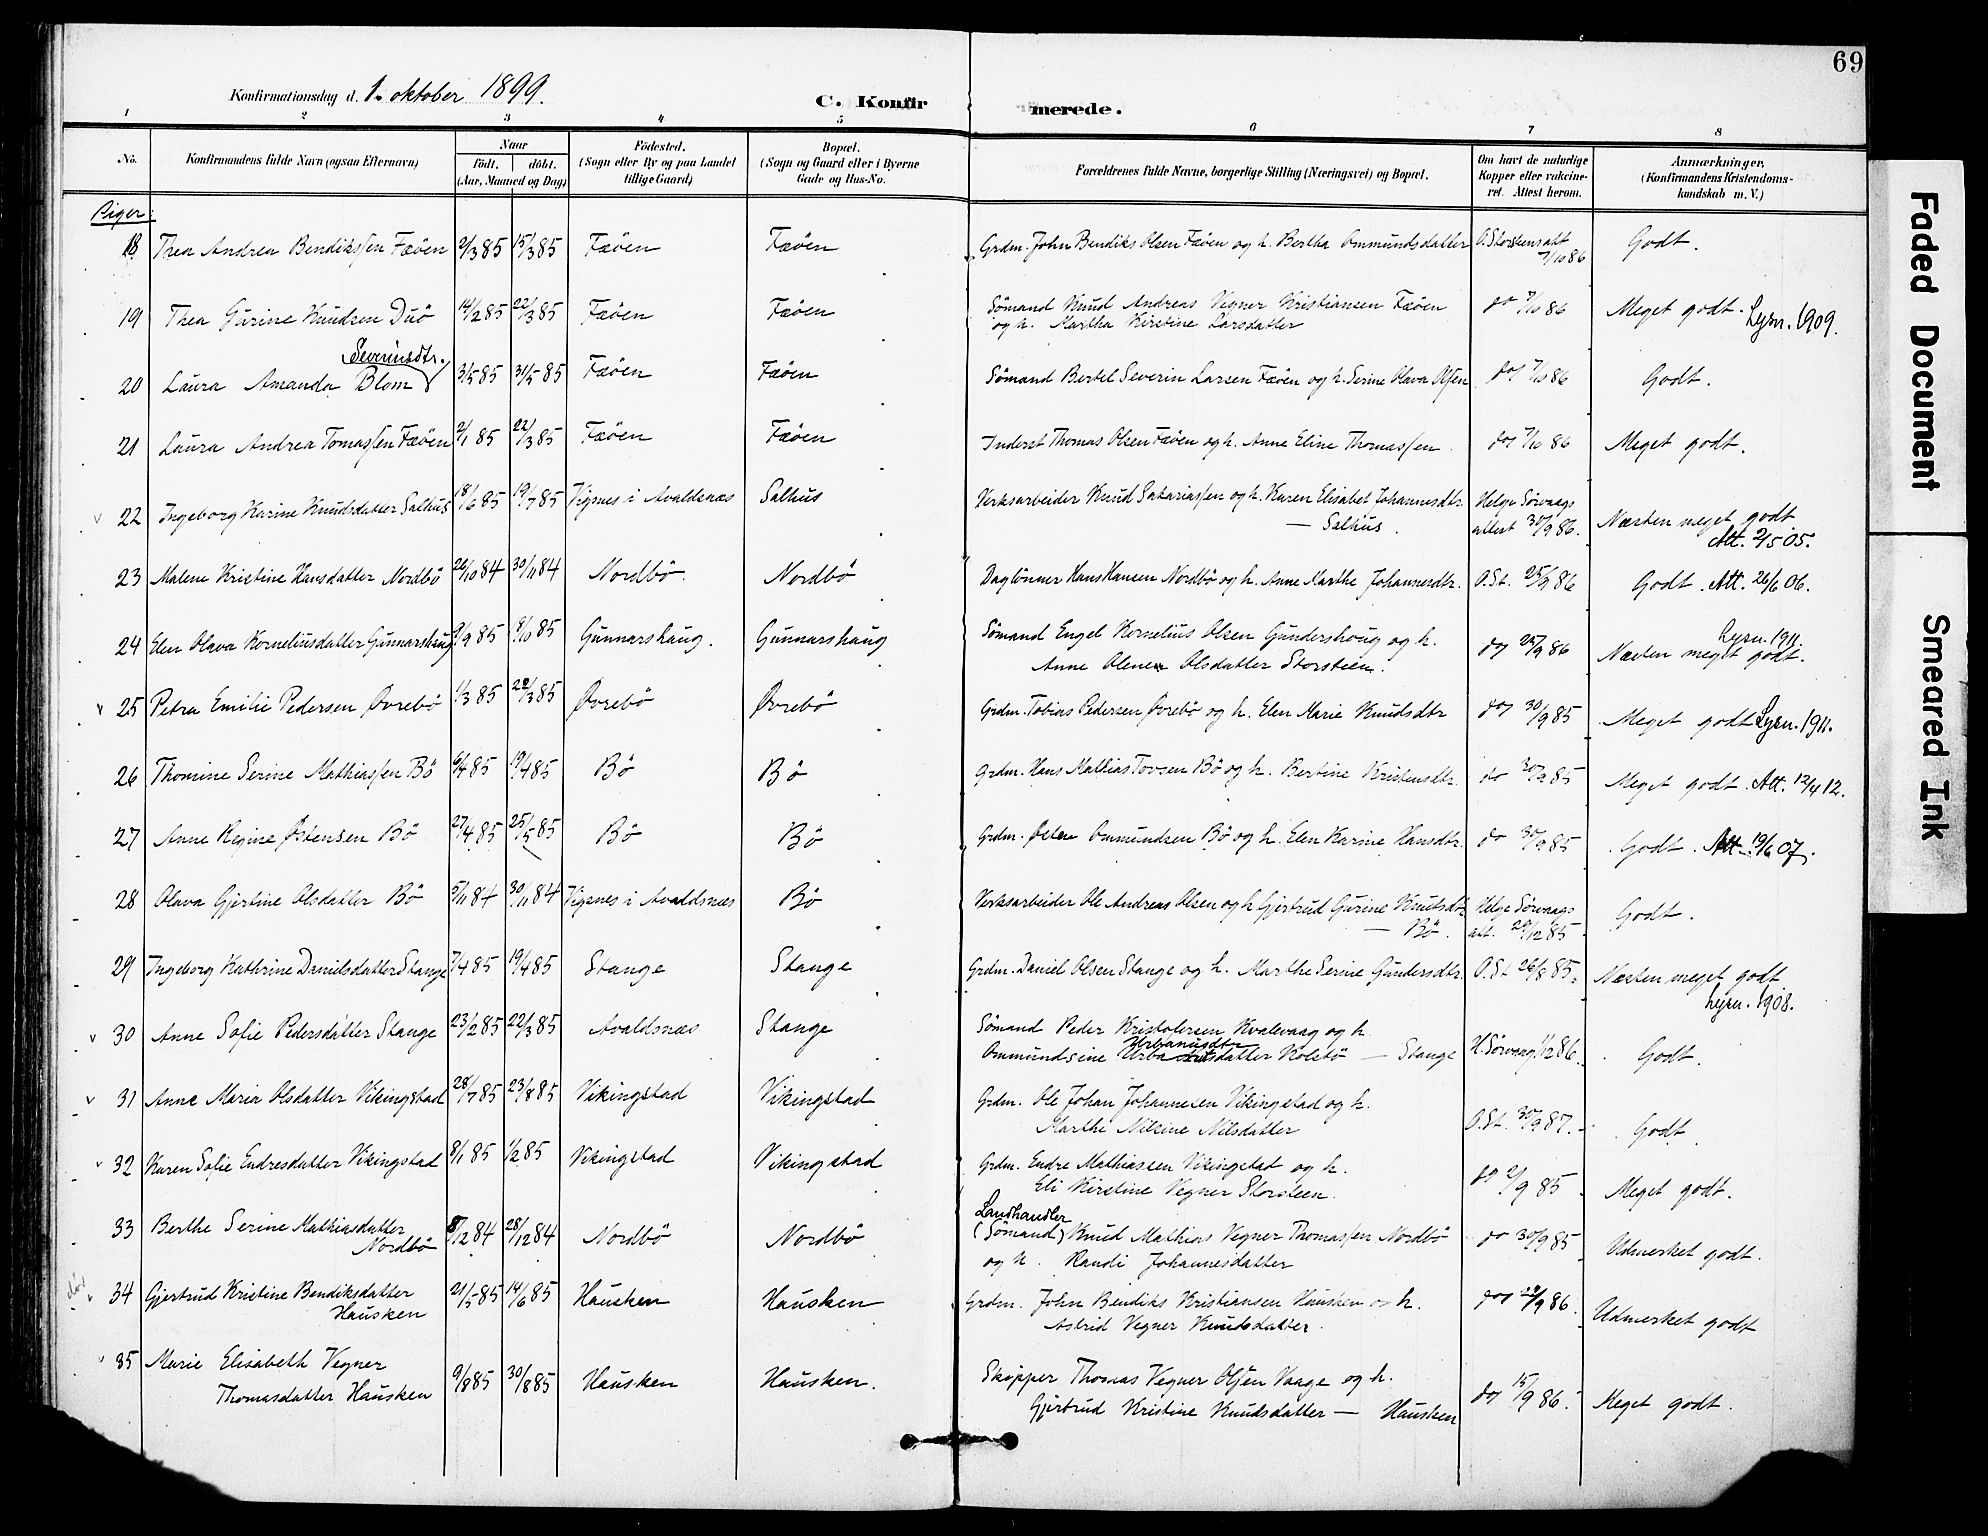 69
Konfirmationsdag d. 1. oktober 1899.
C. Konfirmerede.
1 2 3 4 5 6 7 8
No. Konfirmandens fulde Navn (ogsaa Efternavn) Naar født. døbt. (Aar, Maaned og Dag) Fødested. (Sogn eller By og paa Landet tillige Gaard) Bopæl. (Sogn og Gaard eller i Byerne Gade og Hus-No. Forældrenes fulde Navne, borgerlige Stilling (Næringsvei) og Bopæl. Om havt de naturlige Kopper eller vakcineret. Attest herom. Anmærkninger. (Konfirmandens Kristendomskundskab m. V.)
Piger:
18 Thea Andrea Bendiksen Fæöen 2/3 85 15/3 85 Fæöen Fæöen Grdm. John Bendiks Olsen Fæöen og h. Bertha Ommundsdatter O. Storstens att 7/10 86 Godt.
19 Thea Gurine Knudsen Duö 14/2 85 22/3 85 Fæöen Fæöen Sömand Knud Andreas Vegner Kristiansen Fæöen
og h. Martha Kirstine Larsdatter do 7/10 86 Meget godt. Lysn. 1909.
Severinsdtr.
20 Laura Amanda Blom 3/5 85 31/5 85 Fæöen Fæöen Sömand Bertel Severin Larsen Fæöen og h. Serine Olava Olsen do 7/10 86 Godt.
21 Laura Andrea Tomassen Fæöen 2/1 85 22/3 85 Fæöen Fæöen Inderst Thomas Olsen Fæöen og h. Anne Eline Thomassen do 7/10 86 Meget godt.
22 Ingeborg Karine Knudsdatter Salhus 18/6 85 19/7 85 Vigsnes i Avaldsnæs Salhus Verksarbeider Knud Sakariassen og h. Karen Elisabet Johannesdtr.
— Salhus. Helge Sörvaags attest 30/9 86. Næsten meget godt
Att. 2/5 05.
23 Malene Kristine Hansdatter Nordbö 26/10 84 30/11 84 Nordbö Nordbö Daglönner Hans Hansen Nordbö og h. Anne Marthe Johannesdtr. O. St. 25/9 86 Godt. Att. 26/6 06.
24 Elen Olava Korneliusdatter Gunnarshaug 9/9 85 8/10 85 Gunnarshaug. Gunnarshaug Sömand Engel Kornelius Olsen Gundershoug og h.
Anne Olene Olsdatter Storsteen. do 25/9 86 Lysn. 1911.
Næsten meget godt.
25 Petra Emilie Pedersen Øvrebö 1/3 85 22/3 85 Øvrebö Øvrebö Grdm. Tobias Pedersen Øvrebö og h. Elen Marie Knudsdtr do 30/9 85 Meget godt Lysn. 1911.
26 Thomine Serine Mathiassen Bö 6/4 85 19/4 85 Bö Bö Grdm. Hans Mathias Tovsen Bö og h. Bertine Kristensdtr. do 30/9 85 Meget godt. Att. 12/4 12.
27 Anne Regine Østensen Bö 27/4 85 25/5 85 Bö Bö Grdm. Østen Ommundsen Bö og h. Elen Karine Hansdtr. do 30/9 85 Godt. Att. 19/6 07.
28 Olava Gjertine Olsdatter Bö 5/11 84 30/11 84 Vigsnes i Avaldsnæs Bö Verksarbeider Ole Andreas Olsen og h Gjertrud Gurine Knutsdtr
— Bö. Helge Sörvaags att. 29/12 85 Godt.
29 Ingeborg Kathrine Danielsdatter Stange 7/4 85 19/4 85 Stange Stange Grdm. Daniel Olsen Stange og h. Marthe Serine Gundersdtr. O. St 26/8 85. Næsten meget godt
Lysn. 1908.
30 Anne Sofie Pedersdatter Stange 23/2 85 22/3 85 Avaldsnæs Stange Sömand Peder Kristofersen Kvalevaag og h.
Urbanusdtr
Ommundsine Kolstö — Stange H. Sörvaag 1/12 86. Godt.
31 Anne Maria Olsdatter Vikingstad 28/7 85 23/8 85 Vikingstad Vikingstad Grdm. Ole Johan Johannesen Vikingstad og h.
Marthe Nilsine Nilsdatter O. St. 30/9 87. Godt.
32 Karen Sofie Endresdatter Vikingstad 8/1 85 1/2 85 Vikingstad Vikingstad Grdm. Endre Mathiassen Vikingstad og h.
Eli Kirstine Vegner Storsteen. do 2/9 85 Meget godt.
33 Berthe Serine Mathiasdatter
Nordbö 8/12 84 28/12 84 Nordbö Nordbö Landhandler
(Sömand) Knud Mathias Vegner Thomassen Nordbö
og h. Randi Johannesdatter do 30/9 85 Udmerket godt.
34 Gjertrud Kristine Bendiksdatter
Hausken 21/5 85 14/6 85 Hausken Hausken Grdm. John Bendiks Kristiansen Hausken og h.
Astrid Vegner Knudsdatter. do /9 86. Udmerket godt
35 Marie Elisabeth Vegner
Thomasdatter Hausken 9/8 85 30/8 85 Hausken Hausken. Skipper Thomas Vegner Olsen Vaage og h.
Gjertrud Kristine Knudsdatter — Hausken do 15/9 86. Meget godt.
Faded Document
Smeared Ink